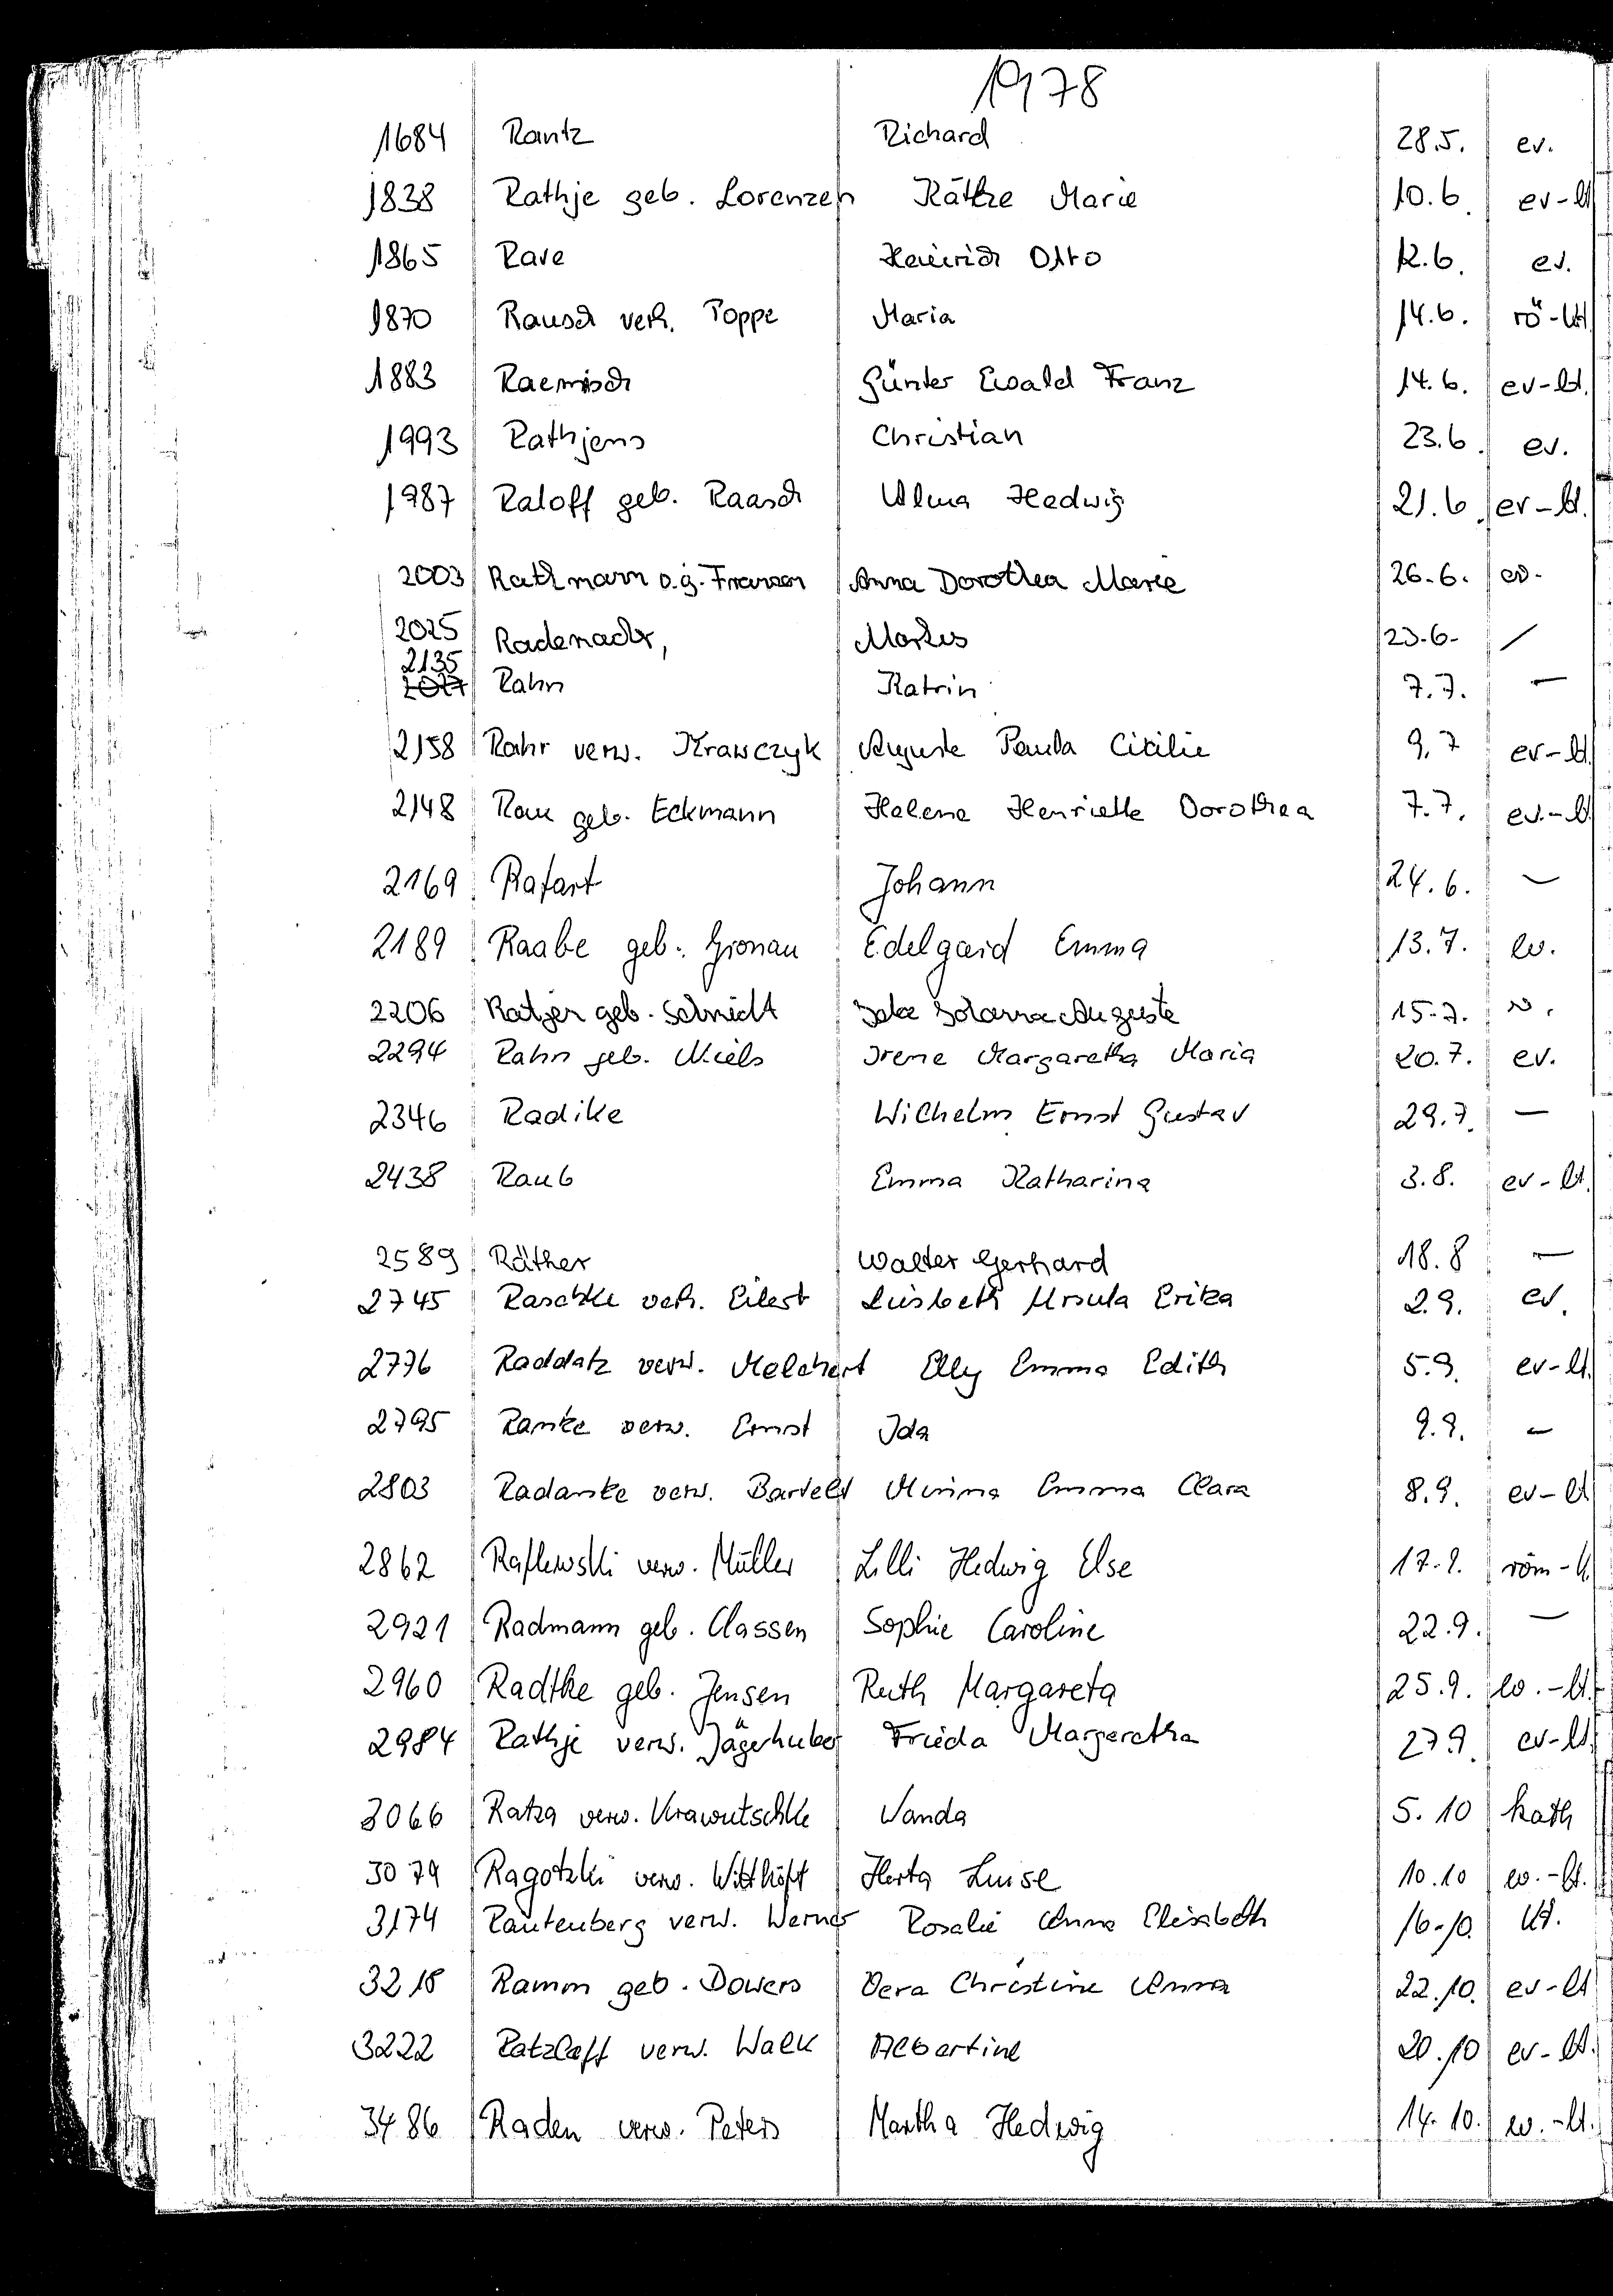 1978
1684 Rantz Richard 28.5. ev.
1838 Rathje geb. Lorenzen Käthe Marie 10.6. ev-lt
1865 Rave Heinrich Otto 12.6. ev.
1870 Rausch verh. Poppe Maria 14.6. rö-kt
1883 Raemisch Günter Ewald Franz 14.6. ev-lt.
1993 Rathjens Christian 23.6. ev.
1987 Raloff geb. Raasch Alma Hedwig 21.6. ev-lt.
2003 Rathmann o.g. Franzen Anna Dorothea Marie 26.6. ev.
2025 Rademacher, 23.6. /
2135 Rahn Katrin 7.7. —
2158 Rahr verw. Krawczyk Auguste Paula 9.7 ev-lt.
2148 Rau geb. Eckmann Helene Henriette Dorothea 7.7. ev.-lt
2169 Rafart Johann 24.6. —
2189 Raabe geb. Gronau Edelgard Emma 13.7. ev.
2206 Ratjen geb. Schmidt Auguste 15.7.
2294 Rahn geb. Niels Irene Margaretha Maria 20.7. ev.
2346 Radike Wilhelm Ernst Gustav 29.7. —
2438 Raub Emma Katharina 3.8. ev-lt.
2589 Räther Walter Gerhard 18.8 —
2745 Raschke verh. Eilert Liesbeth Ursula Erika 2.9. ev.
2776 Raddatz verw. Melchert Elly Emma Edith 5.9. ev-lt.
2795 Ranke verw. Ernst Ida 9.9. —
2803 Radanke verw. Bartelt Minna Emma Clara 8.9. ev-lt
2862 verw. Müller Lilli Hedwig Else 17.9. röm-k.
2921 Radmann geb. Classen Sophie Caroline 22.9. —
2960 Radtke geb. Jensen Ruth Margareta 25.9. ev.-lt.
2984 Rathje verw. Jägerhuber Frieda Margaretha 27.9. ev-lt.
3066 Ratza verw. Krawutschke Wanda 5.10 kath
3079 Ragotzki verw. Witthöft Herta Luise 10.10 ev.-lt.
3174 Rautenberg verw. Werner Rosalie Anna Elisabeth 16.10. kt.
3218 Ramm geb. Dowers Vera Christine Anna 22.10. ev-lt
3222 Ratzlaff verw. Walk Albertine 20.10 ev-lt.
3486 Raden verw. Peters Martha Hedwig 14.10. ev.-lt.